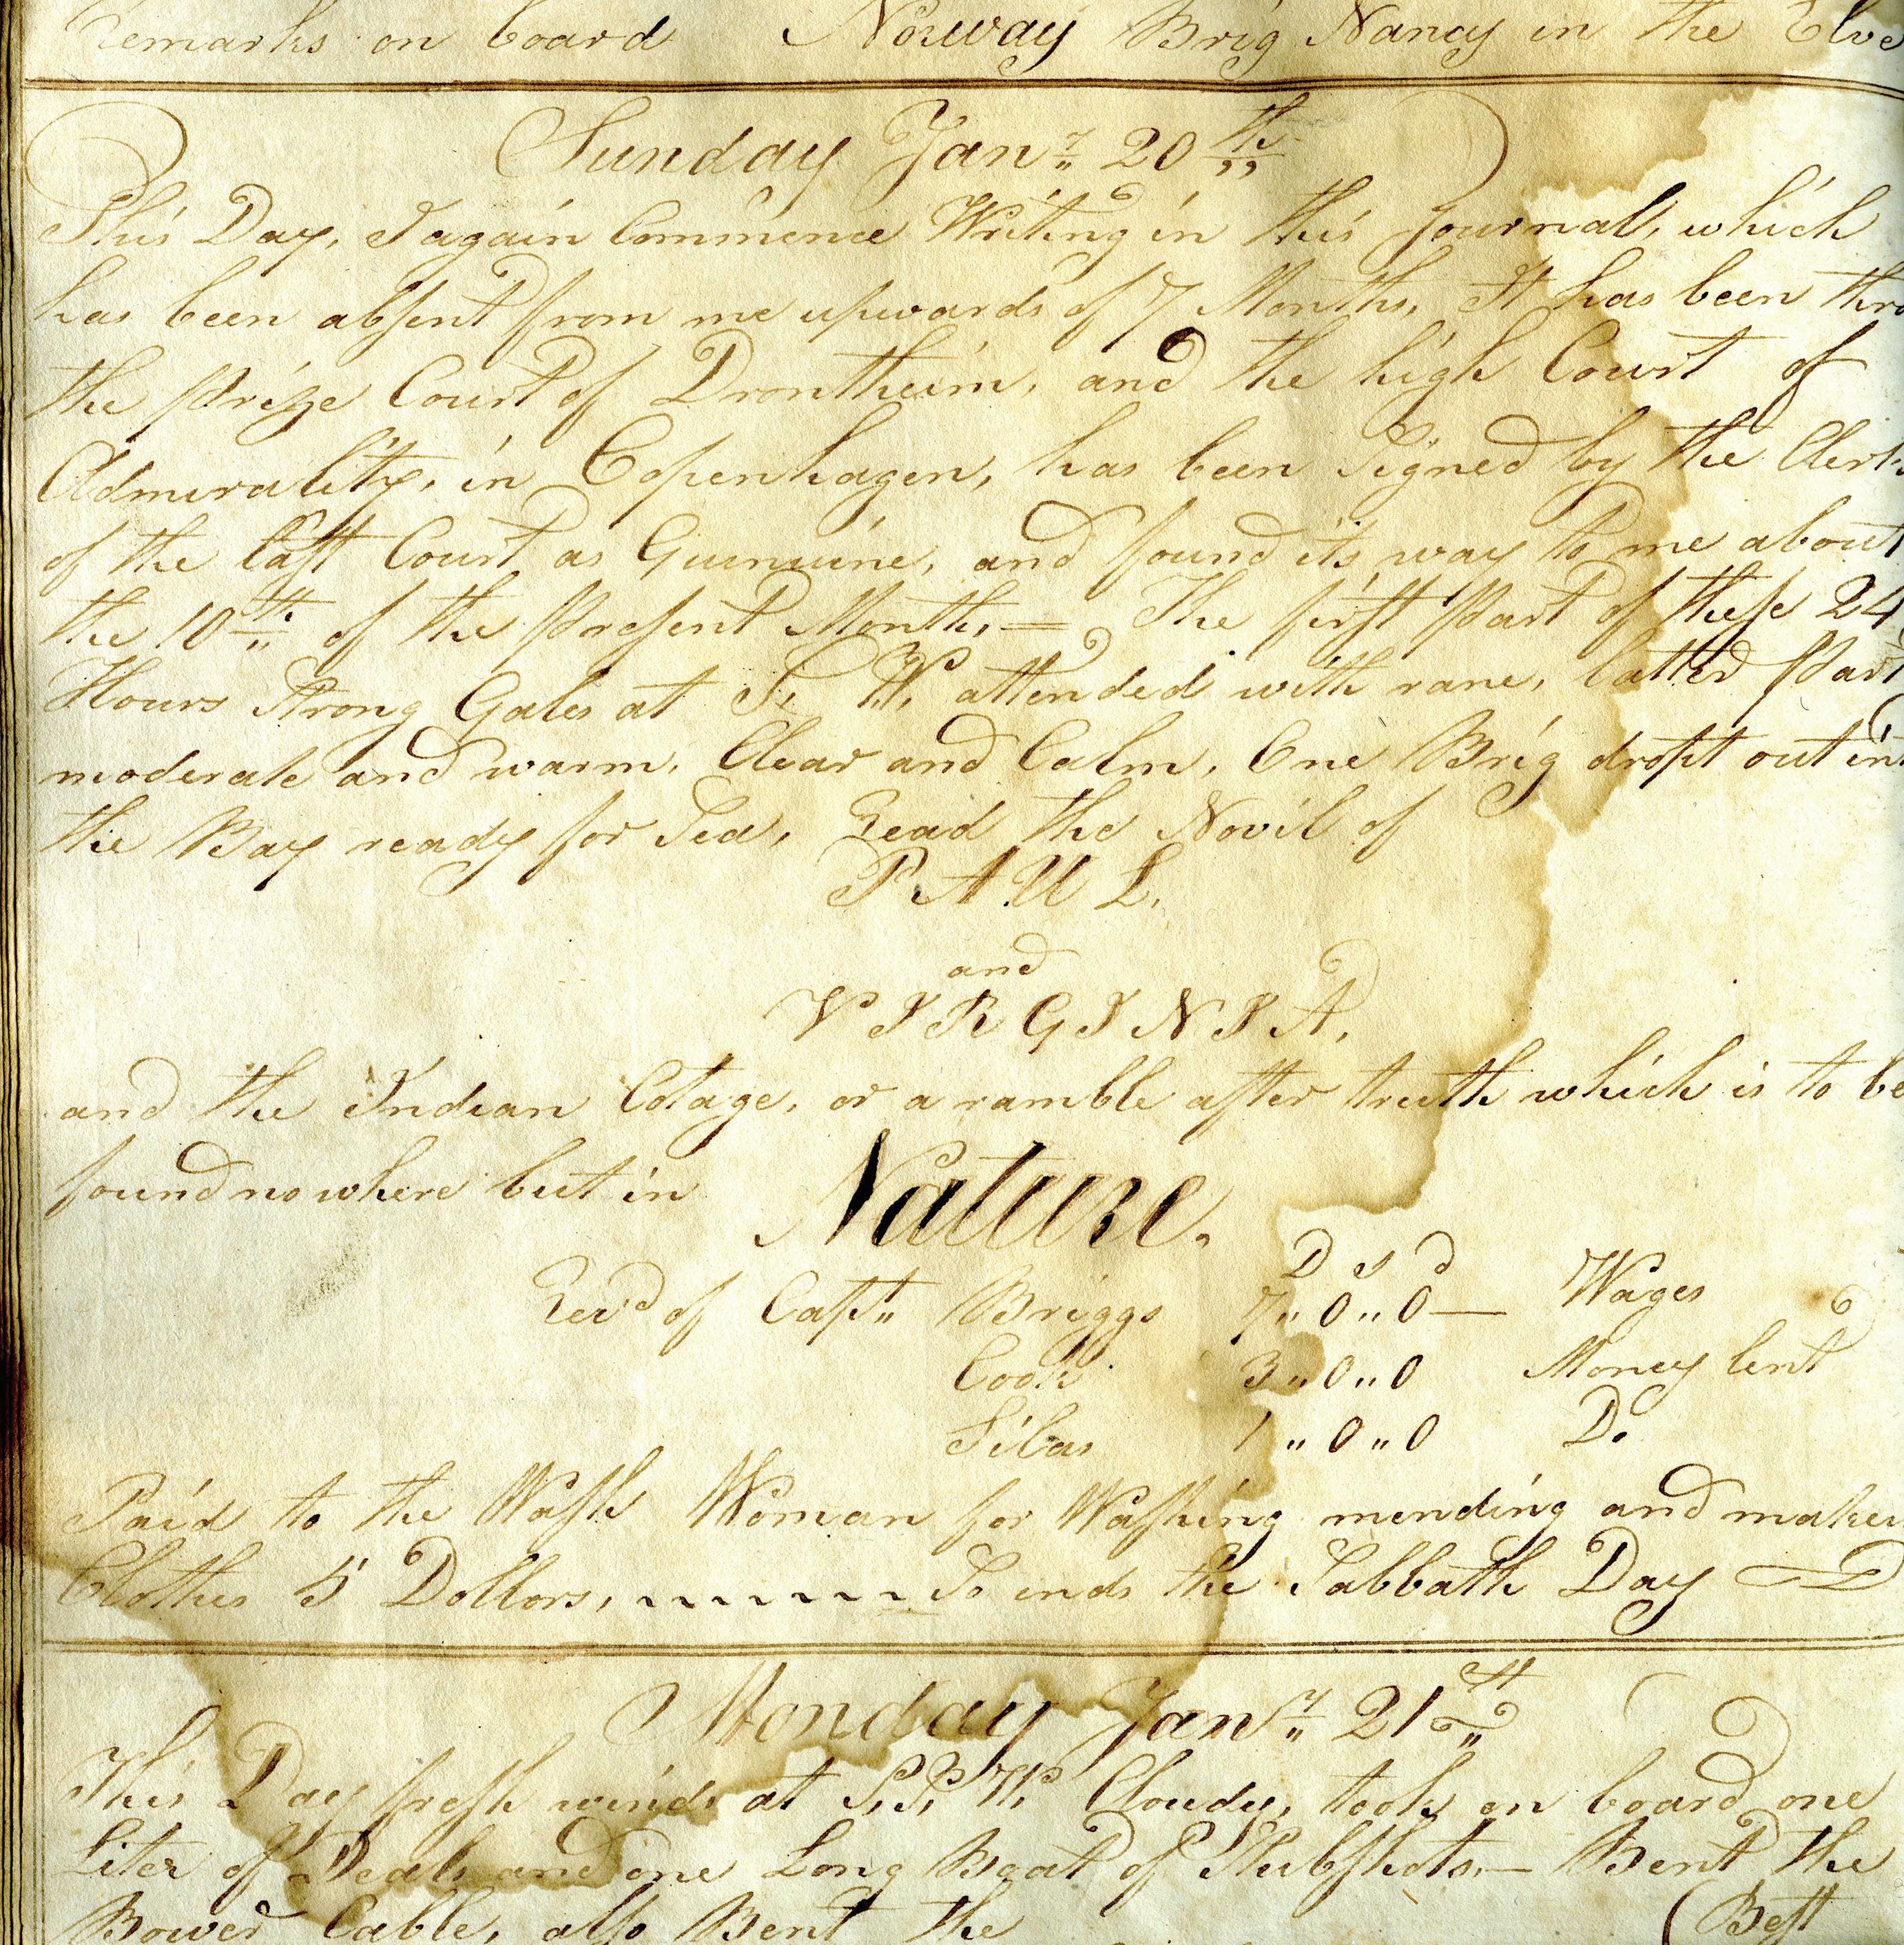 Remarks on board Norway Brig Nancy in the Elve
Sunday Jany 20th
This Day, I again Commence Writing in this Journal, which
has been absent from me upwards of 7 Months, It has been thro
the Prize Court of Drontheim, and the high Court of
Admirality, in Copenhagen, has been Signed by the Clerk
of the last Court as Guinuine, and found it's way to me about
the 10th of the Present Month, = The first Part of these 24
Hours Strong Gales at S. W. attended with rane, latter Part
moderate and warm, Clear and Calm, One Brig dropt out in
the Bay ready for Sea, Read the Novil of
PAUL.
and
VIRGINIA,
and the Indian Cotage, or a ramble after truth which is to be
found no where but in Nature.
D s d
Recvd of Capt Briggs 7,,0,,0— Wages
Cook 3,,0,,0 Money lent
Silas 1,,0,,0 Do
Paid to the Wash Woman for Washing mending and making
Clothes 5 Dollors, So ends the Sabbath Day
Monday Jany 21st
This Day fresh winds at S. S. W. Cloudy, took on board one
Liter of Deals and one Long Boat of — Bent the
Bower Cable, also Bent the (Best